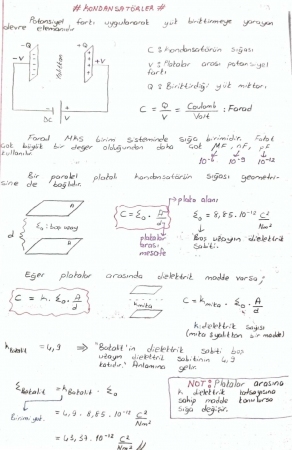 # KONDANSATÖRLER #
Potansiyel farkı uygulanarak yük biriktirmeye yarayan
devre elemanıdır.
-Q +Q
-V +V
C : Kondansatörün sığası
V : Plakalar arası potansiyel
farkı
Q : Biriktirdiği yük miktarı
DC
C = Q/V = Coulomb/Volt : Farad
Farad MKS birim sisteminde sığa birimidir. Fakat
çok büyük bir değer olduğundan daha çok μF, nF, pF
kullanılır.
10-6 10-9 10-12
Bir paralel plakalı kondansatörün sığası geometri-
sine de bağlıdır.
plaka alanı
d
ε0 : boş uzay
C = ε0 . A/d
plakalar
arası
mesafe
ε0 = 8,85 . 10-12 C2/Nm2
Boş uzayın dielektrik
sabiti.
Eğer plakalar arasında dielektrik madde varsa;
C = k . ε0 . A/d
kmika
C = kmika . ε0 . A/d
k: dielektrik sabiti
kBakalit = 4,9 ⇒ "Bakalit'in dielektrik sabiti boş
uzayın dielektrik sabitinin 4,9
katıdır." Anlamına gelir.
εBakalit = kBakalit . ε0
= 4,9 . 8,85 . 10-12 C2/Nm2
= 43,37 . 10-12 C2/Nm2 //
NOT : Plakalar arasına
k dielektrik katsayısına
sahip madde konulursa
sığa değişir.